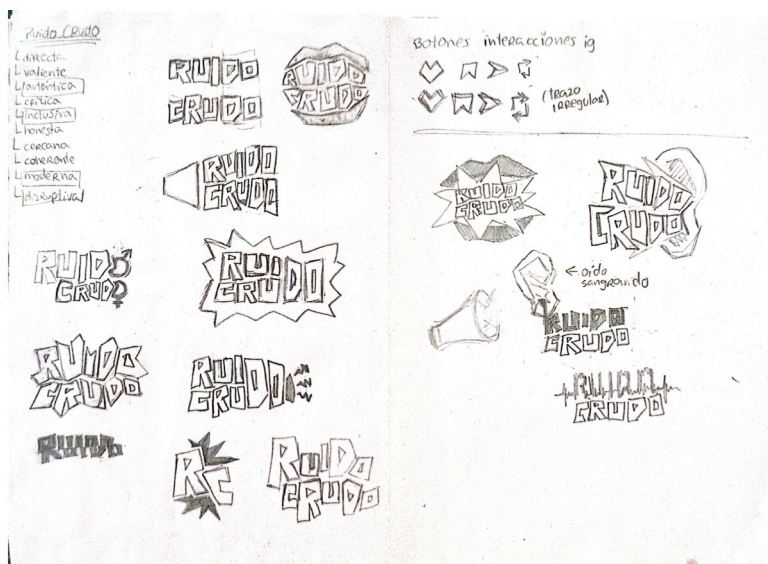 Ruido Crudo
directa
valiente
auténtica
crítica
inclusiva
honesta
cercana
coherente
moderna
disruptiva
RUIDO
CRUDO
RUIDO
CRUDO
RUIDO
CRUDO
RUIDO
CRUDO
RUIDO
CRUDO
RUIDO
CRUDO
RUIDO
CRUDO
RUIDO
RC
RUIDO
CRUDO
Botones interacciones ig
(trazo
irregular)
RUIDO
CRUDO
RUIDO
CRUDO
← oído
sangrando
RUIDO
CRUDO
RUIDO
CRUDO